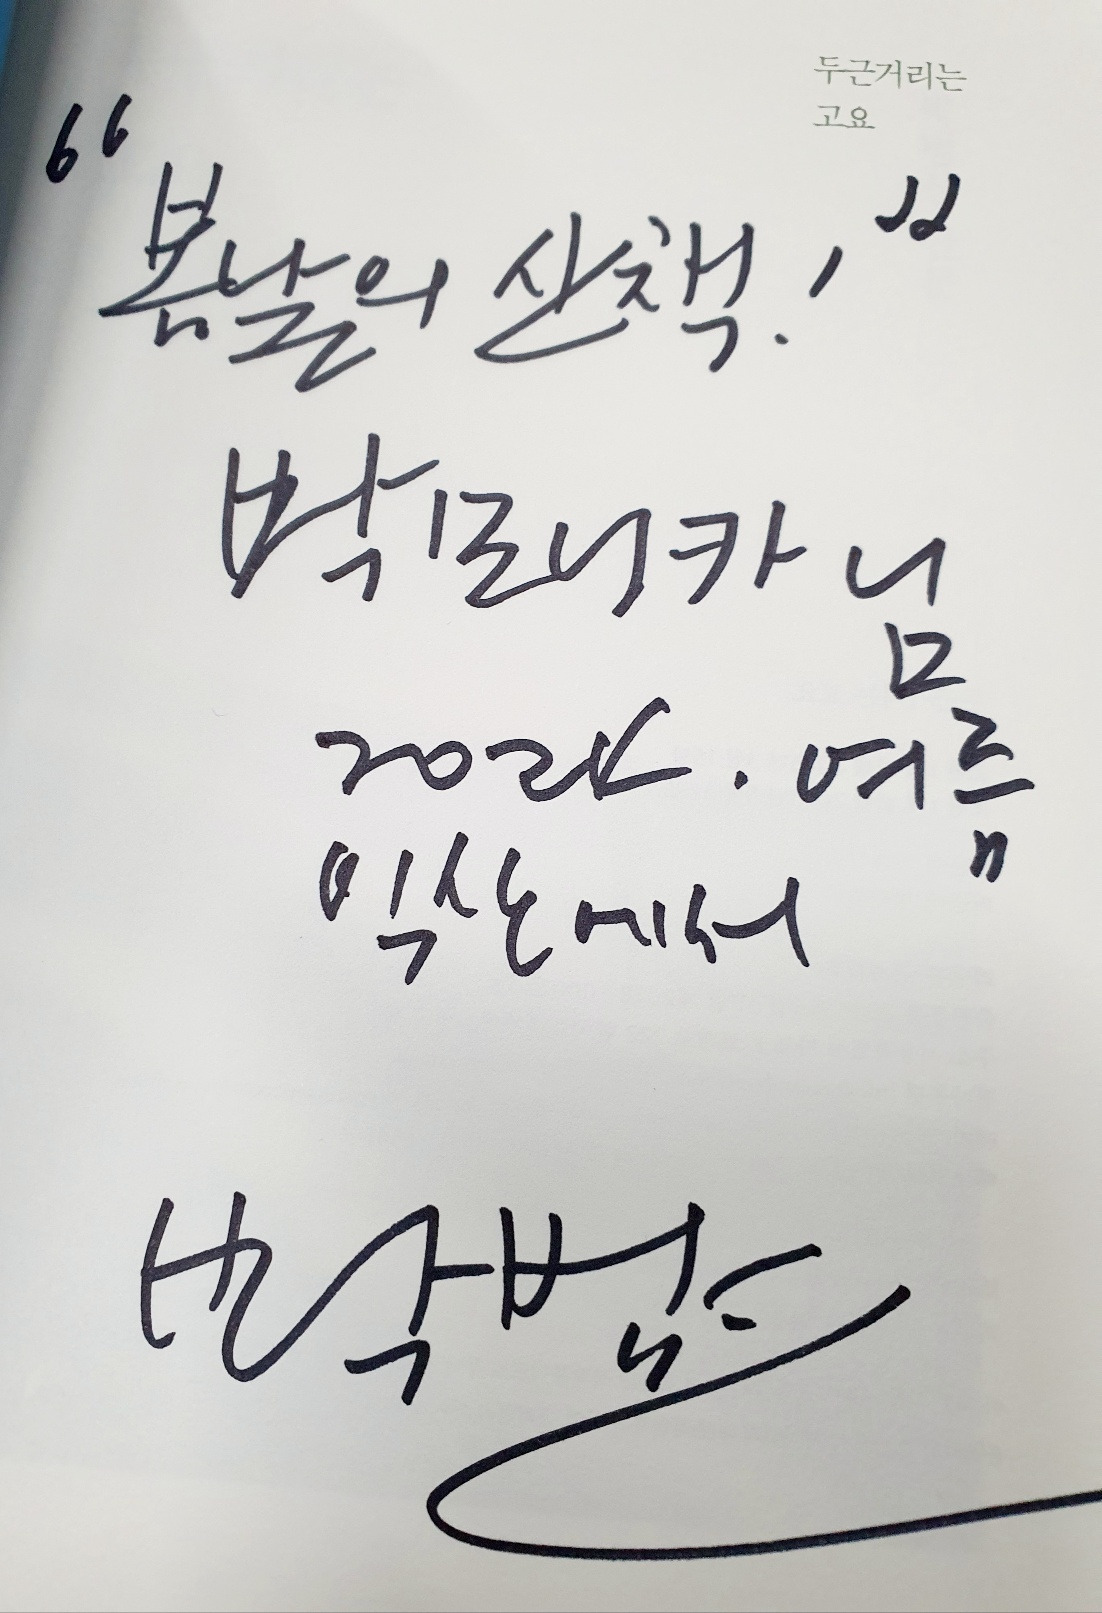 두근거리는
고요
"봄날의 산책!"
박모니카 님
2024. 여름
익산에서
박범신